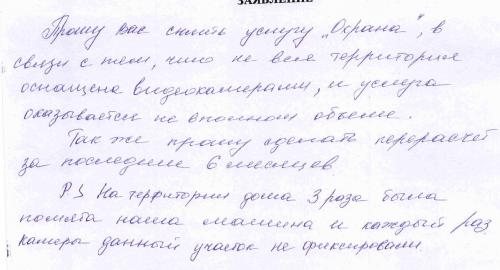 ЗАЯВЛЕНИЕ
Прошу Вас снять услугу „Охрана", в
связи с тем, что не вся территория
оснащена видеокамерами, и услуга
оказывается не в полном объеме.
Так же прошу сделать перерасчет
за последние 6 месяцев.
P.S На территории дома 3 раза была
помята наша машина и каждый раз
камеры данный участок не фиксировали.